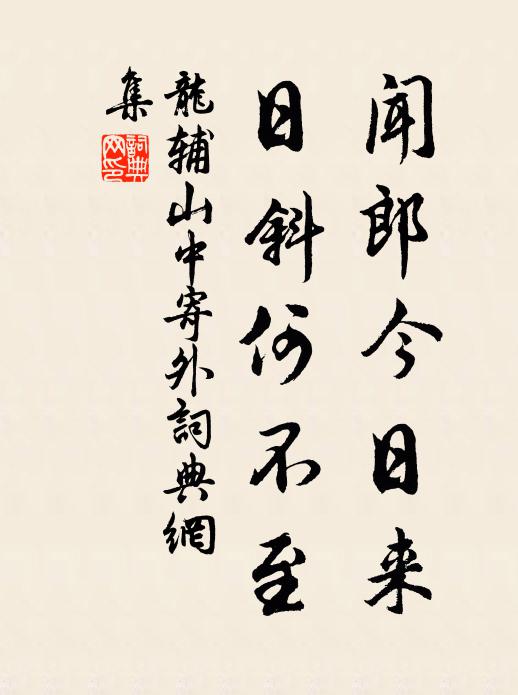 闻郎今日来
日斜何不至
龍辅山中寄外詞典網
集
詞典
网印